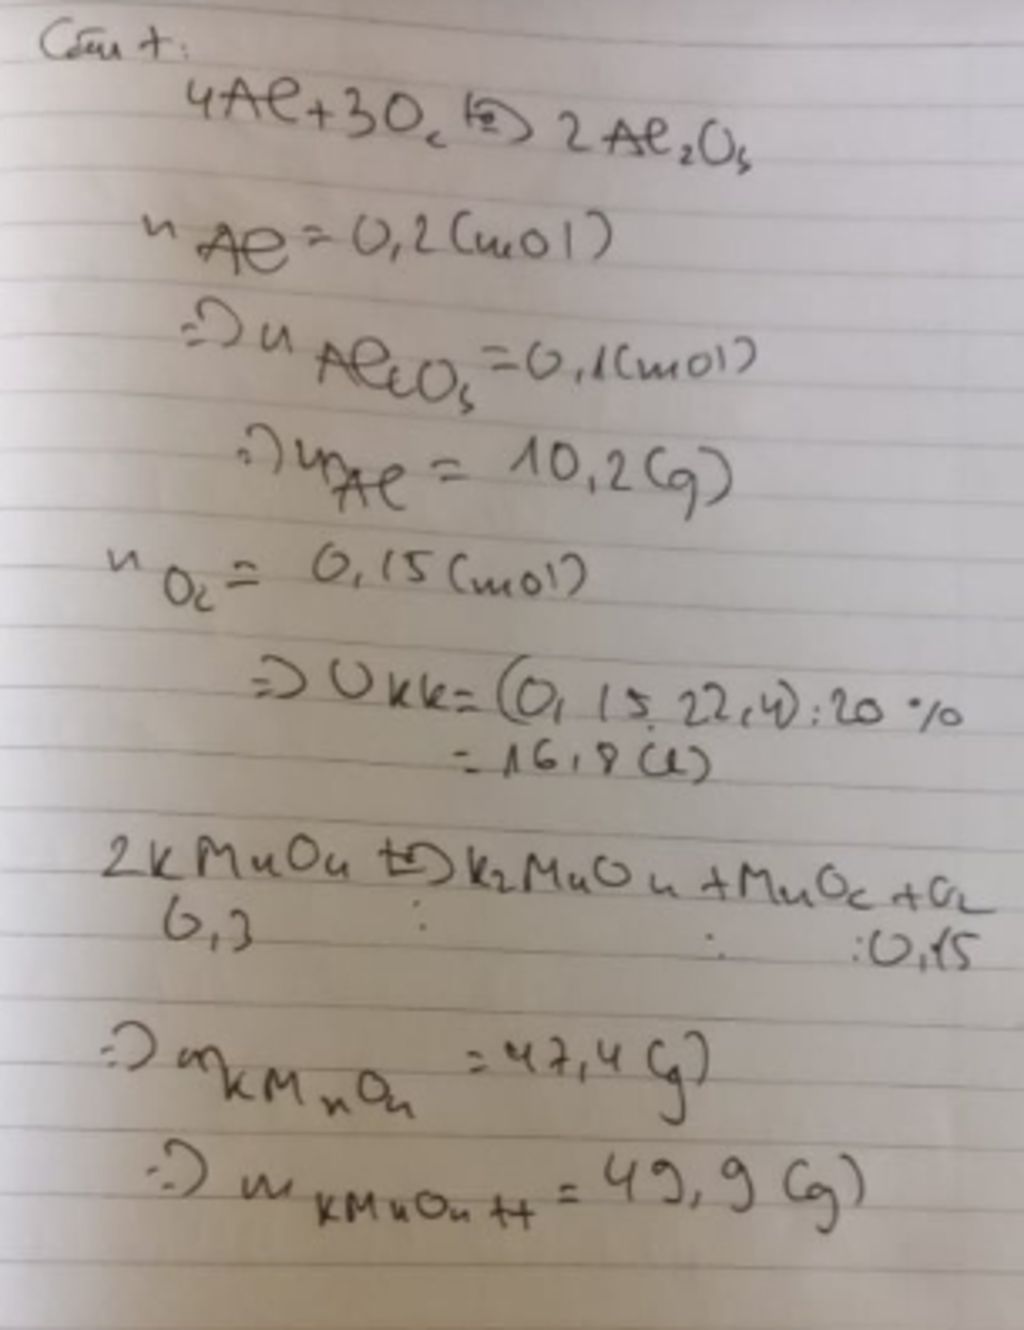 Câu 7:
4Al + 3O₂ t°→ 2Al₂O₃
nAl = 0,2 (mol)
=> nAl₂O₃ = 0,1 (mol)
=> mAl = 10,2 (g)
nO₂ = 0,15 (mol)
=> Vkk = (0,15.22,4):20%
= 16,8 (l)
2KMnO₄ t°→ K₂MnO₄ + MnO₂ + O₂
0,3 : : :0,15
=> mKMnO₄ = 47,4 (g)
=> mKMnO₄ tt = 49,9 (g)